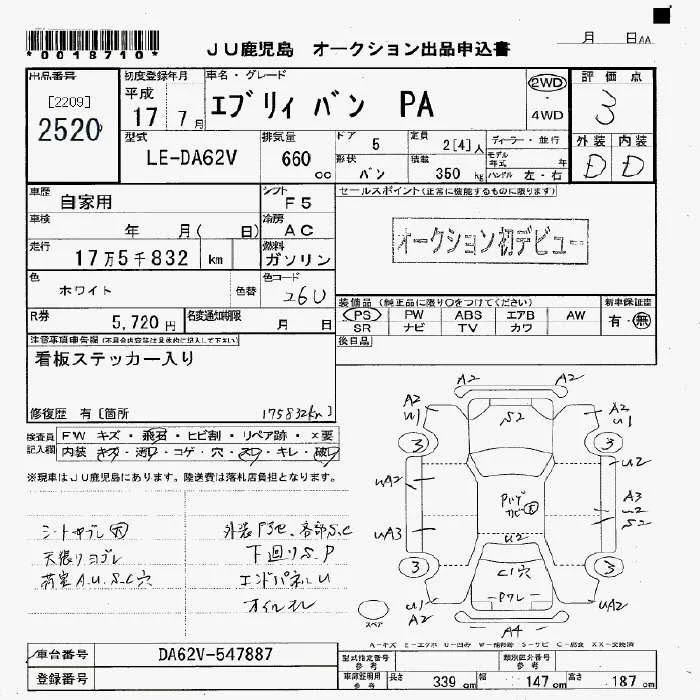 *0018710*
JU鹿児島 オークション出品申込書
月 日AA
出品番号
[2209]
2520
初度登録年月
平成
17 7月
車名・グレード
エブリィ バン PA
2WD
・
4WD
評価点
3
型式
LE-DA62V
排気量
660
cc
ドア
5
形状
バン
定員
2[4]人
積載
350 kg
ディーラー・並行
モデル年式 年
ハンドル 左・右
外装 内装
D D
車歴
自家用
シフト
F5
車検
年 月( 日)
冷房
AC
走行
17万5千832 km
燃料
ガソリン
色
ホワイト
色替
色コード
26U
R券
5,720円
名変通知期限
月 日
セールスポイント(正常に機能するものに限ります)
オークション初デビュー
装備品(純正品に限り○をつけてください)
PS PW ABS エアB AW
SR ナビ TV カワ
新車保証書
有・無
後日品
注意事項申告欄(不具合内容等は具体的に記入して下さい)
看板ステッカー入り
修復歴 有[箇所 175832km]
検査員
記入欄
FW キズ・飛石・ヒビ割・リペア跡・×要
内装・キズ・汚レ・コゲ・穴・スレ・キレ・破レ
※現車はJU鹿児島にあります。陸送費は落札店負担となります。
シートヤブレ大
天張りヨゴレ
荷室A.U.S.C穴
外装P3セ、各部S.C
下廻りS.P
エンドパネルU
オイルモレ
A2 A2
A2
U1
S2
A2
U1
3 3
U2
UA2
A3
U2
S2
UA3
U2
C1穴
3 3
U1
A2
U1
A2
A4
スペア
A-キズ E-エクボ U-凹み W-補修跡 S-サビ C-腐食 XX-交換済
車台番号
DA62V-547887
登録番号
型式指定番号
参考
類別区分番号
参考
車庫証明用
参考
長さ 339 cm 幅 147 cm 高さ 187 cm